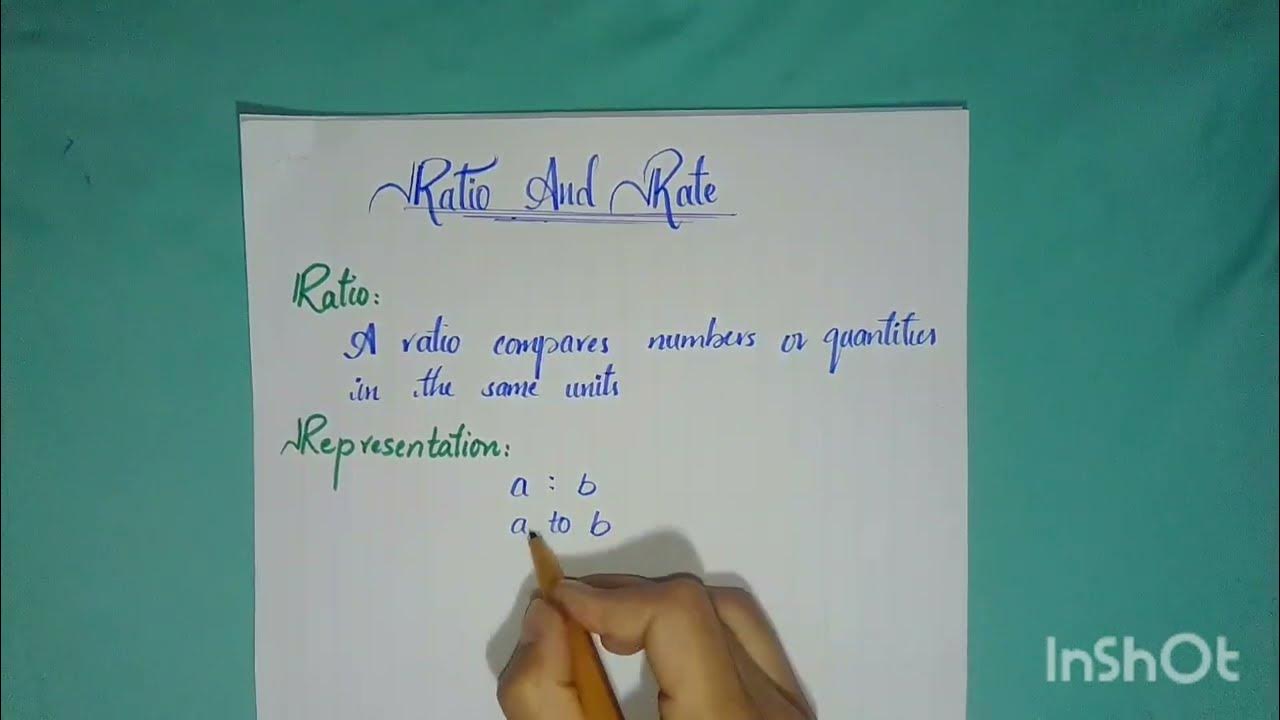 Ratio And Rate
Ratio:
A ratio compares numbers or quantities
in the same units
Representation:
a : b
a to b
InShOt